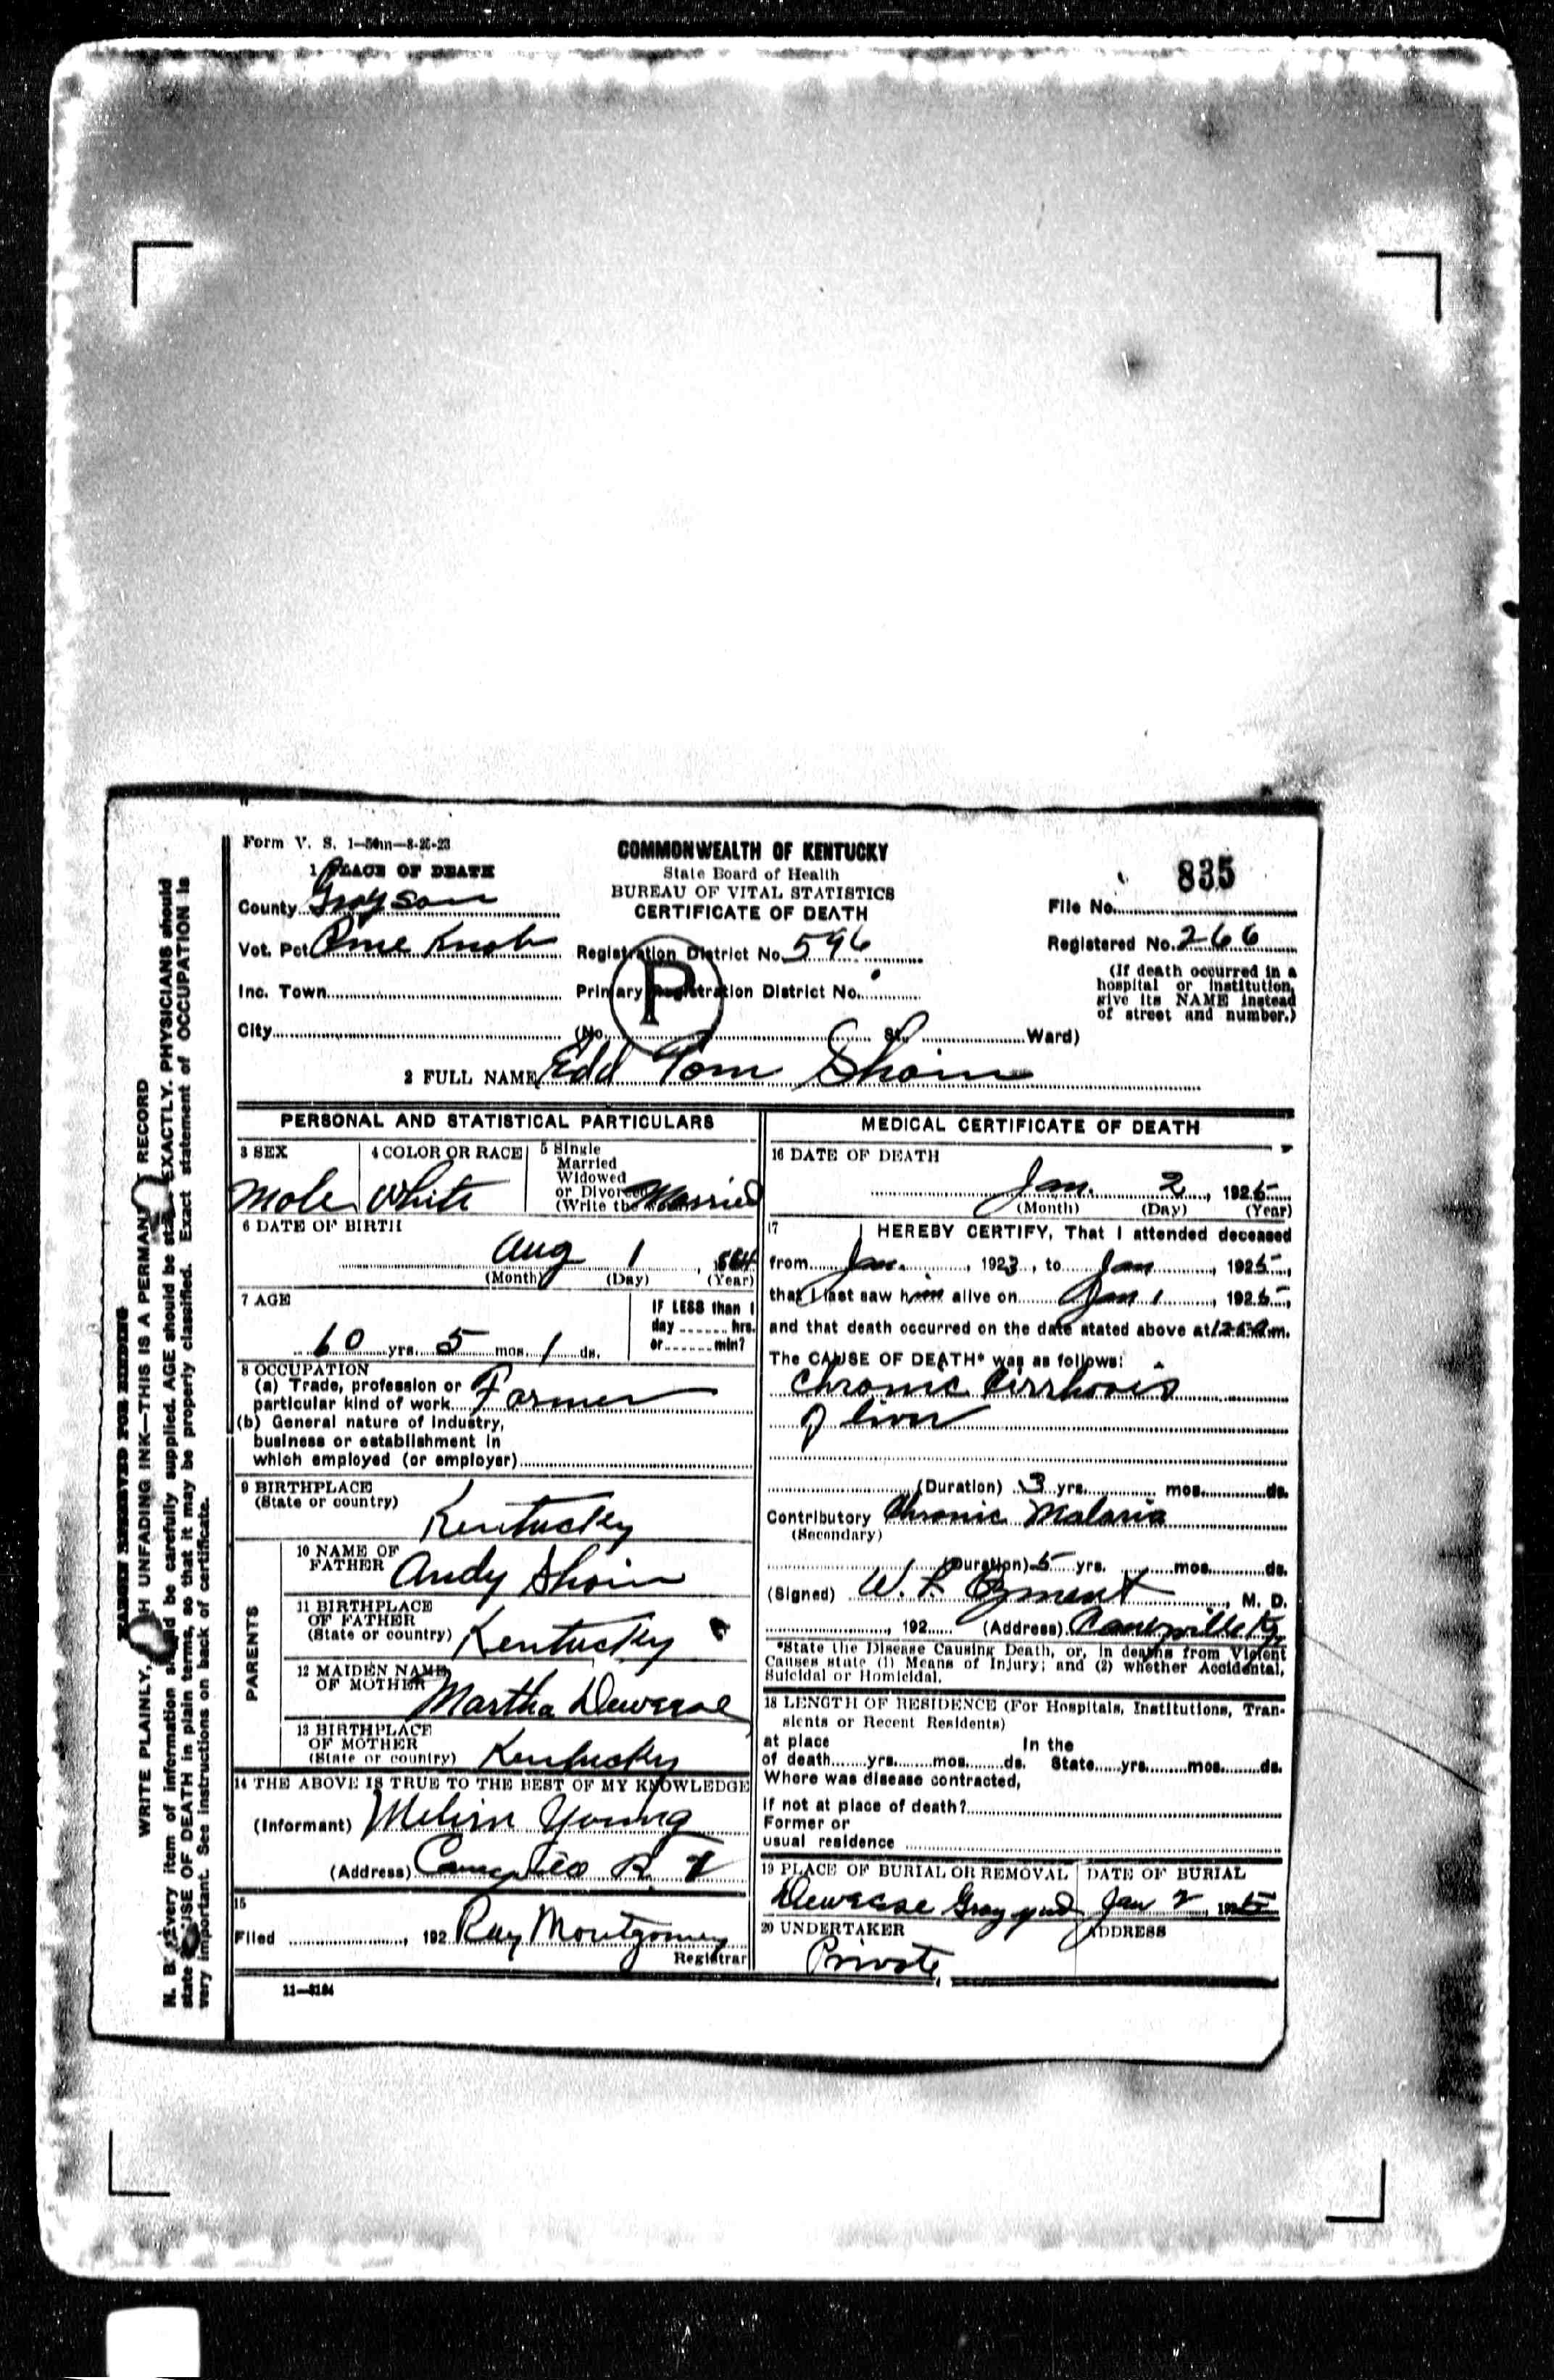 Form V. S. 1—50m—8-25-23
COMMONWEALTH OF KENTUCKY
State Board of Health
BUREAU OF VITAL STATISTICS
CERTIFICATE OF DEATH
835
1 PLACE OF DEATH
County Grayson
File No.
Vot. Pct Pine Knob
Registration District No. 596
Registered No. 266
Inc. Town
Primary Registration District No.
P
(If death occurred in a
hospital or institution,
give its NAME instead
of street and number.)
City
(No. St. Ward)
2 FULL NAME Edd Tom Shain
PERSONAL AND STATISTICAL PARTICULARS
3 SEX
Male
4 COLOR OR RACE
White
5 Single
Married
Widowed
or Divorced
(Write the Married
6 DATE OF BIRTH
Aug 1, 1864
(Month) (Day) (Year)
7 AGE
60 yrs. 5 mos. 1 ds.
IF LESS than 1
day hrs.
or min?
8 OCCUPATION
(a) Trade, profession or
particular kind of work Farmer
(b) General nature of industry,
business or establishment in
which employed (or employer)
9 BIRTHPLACE
(State or country)
Kentucky
PARENTS
10 NAME OF
FATHER Andy Shain
11 BIRTHPLACE
OF FATHER
(State or country) Kentucky
12 MAIDEN NAME
OF MOTHER Martha Deweese
13 BIRTHPLACE
OF MOTHER
(State or country) Kentucky
14 THE ABOVE IS TRUE TO THE BEST OF MY KNOWLEDGE
(Informant) Young
(Address) R
15
Filed , 192 Ray Montgomery
Registrar
11—3184
MEDICAL CERTIFICATE OF DEATH
16 DATE OF DEATH
Jan. 2, 1925
(Month) (Day) (Year)
17 I HEREBY CERTIFY, That I attended deceased
from Jan. , 1923, to Jan , 1925,
that I last saw him alive on Jan 1, 1925,
and that death occurred on the date stated above at m.
The CAUSE OF DEATH* was as follows:
Chronic Cirrhosis
of liver
(Duration) 3 yrs. mos. ds.
Contributory Chronic Malaria
(Secondary)
(Duration) 5 yrs. mos. ds.
(Signed) W. P. Ozment, M. D.
, 192 (Address) Caneyville Ky
*State the Disease Causing Death, or, in deaths from Violent
Causes state (1) Means of Injury; and (2) whether Accidental,
Suicidal or Homicidal.
18 LENGTH OF RESIDENCE (For Hospitals, Institutions, Tran-
sients or Recent Residents)
at place In the
of death yrs. mos. ds. State yrs. mos. ds.
Where was disease contracted,
if not at place of death?
Former or
usual residence
19 PLACE OF BURIAL OR REMOVAL
Deweese Gray yard
DATE OF BURIAL
Jan 2, 1925
20 UNDERTAKER
Private
ADDRESS
MARGIN RESERVED FOR BINDING
WRITE PLAINLY, UNFADING INK—THIS IS A PERMANENT RECORD
N. B. Every item of information should be carefully supplied. AGE should be stated EXACTLY. PHYSICIANS should
state CAUSE OF DEATH in plain terms, so that it may be properly classified. Exact statement of OCCUPATION is
very important. See instructions on back of certificate.